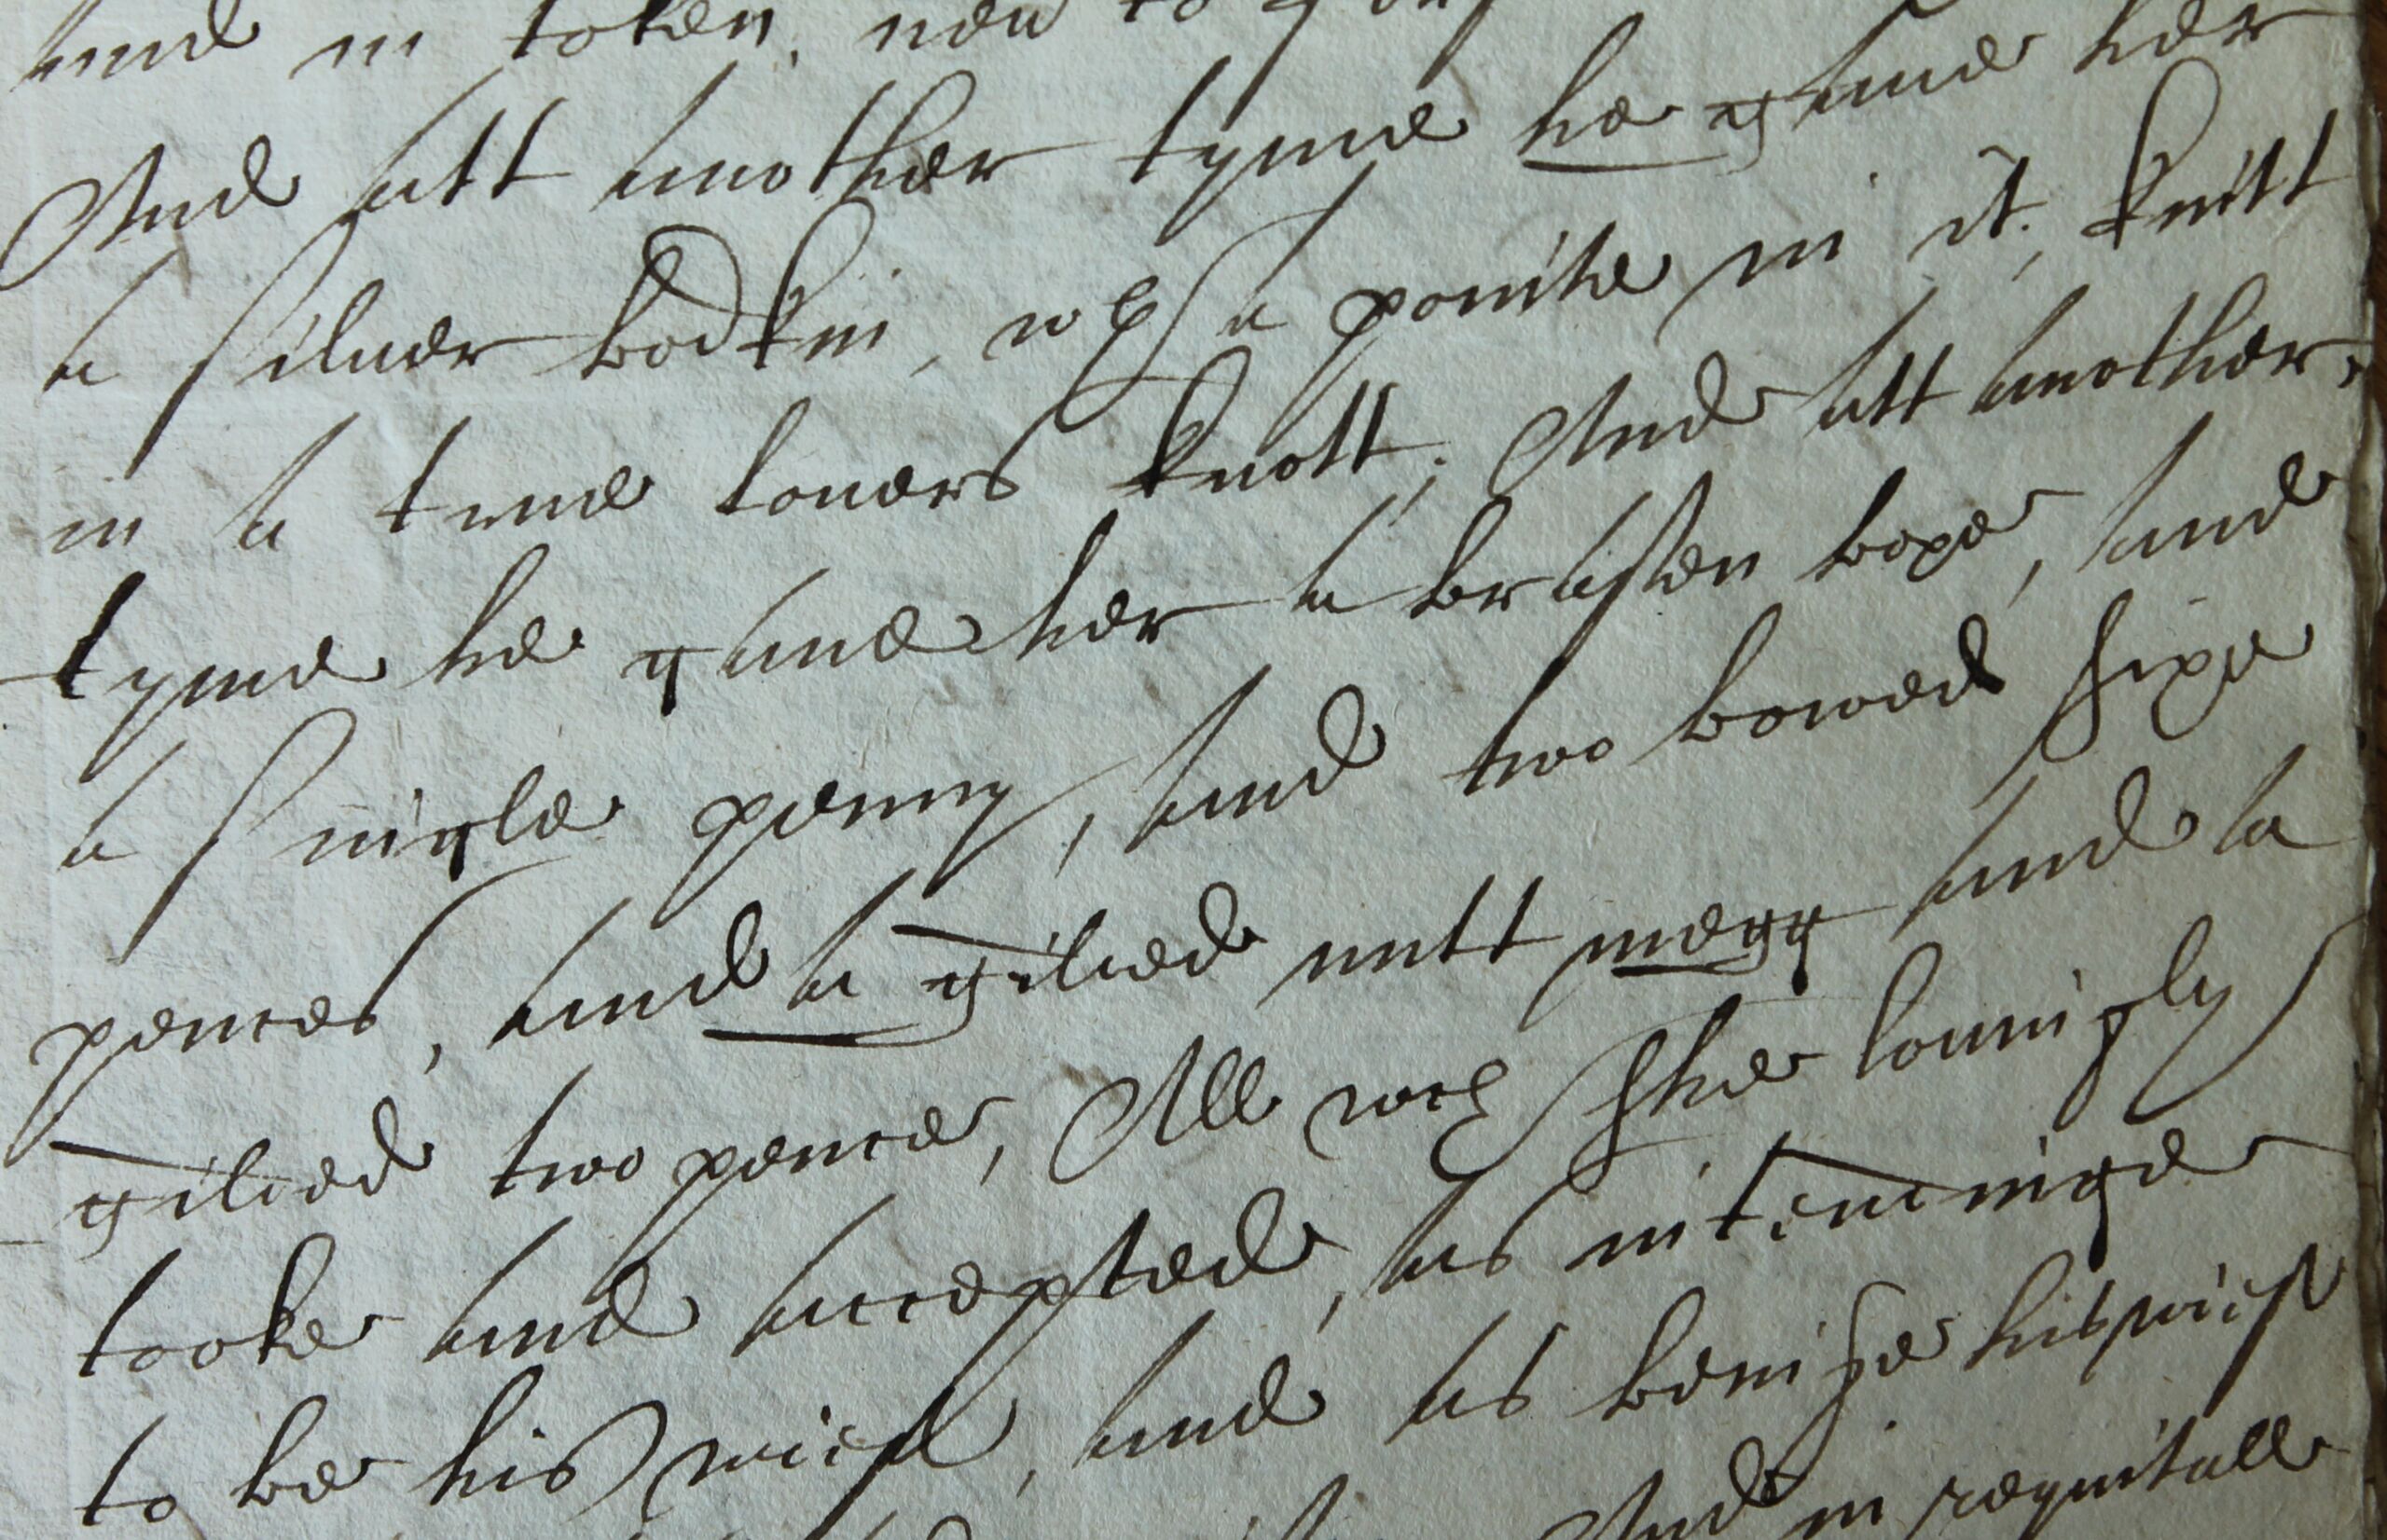 and in token
And att another tyme he gaue her
a siluer bodkin, wth a pointe in it, knitt
in a true louers knott; And att another
tyme he gaue her a brasen boxe, and
a single penny, and two bowed sixe
pences, and a gilded nutt megg and a
gilded two pence, All wch shee louingly
tooke and accepted, as intendinge
to be his wief, and as beinge his wief
And in requitall